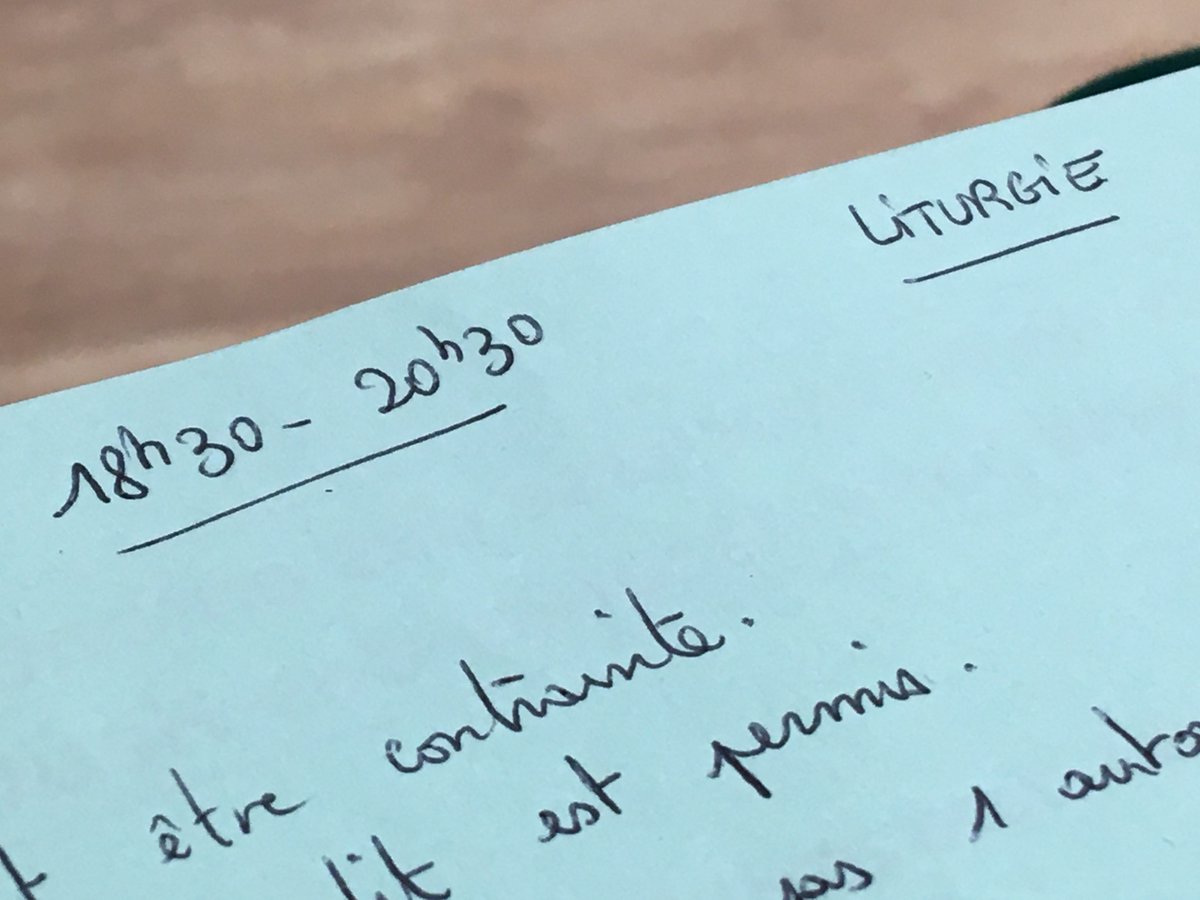 LiTURGiE
18h30 - 20h30
être contrainte.
est permis.
1